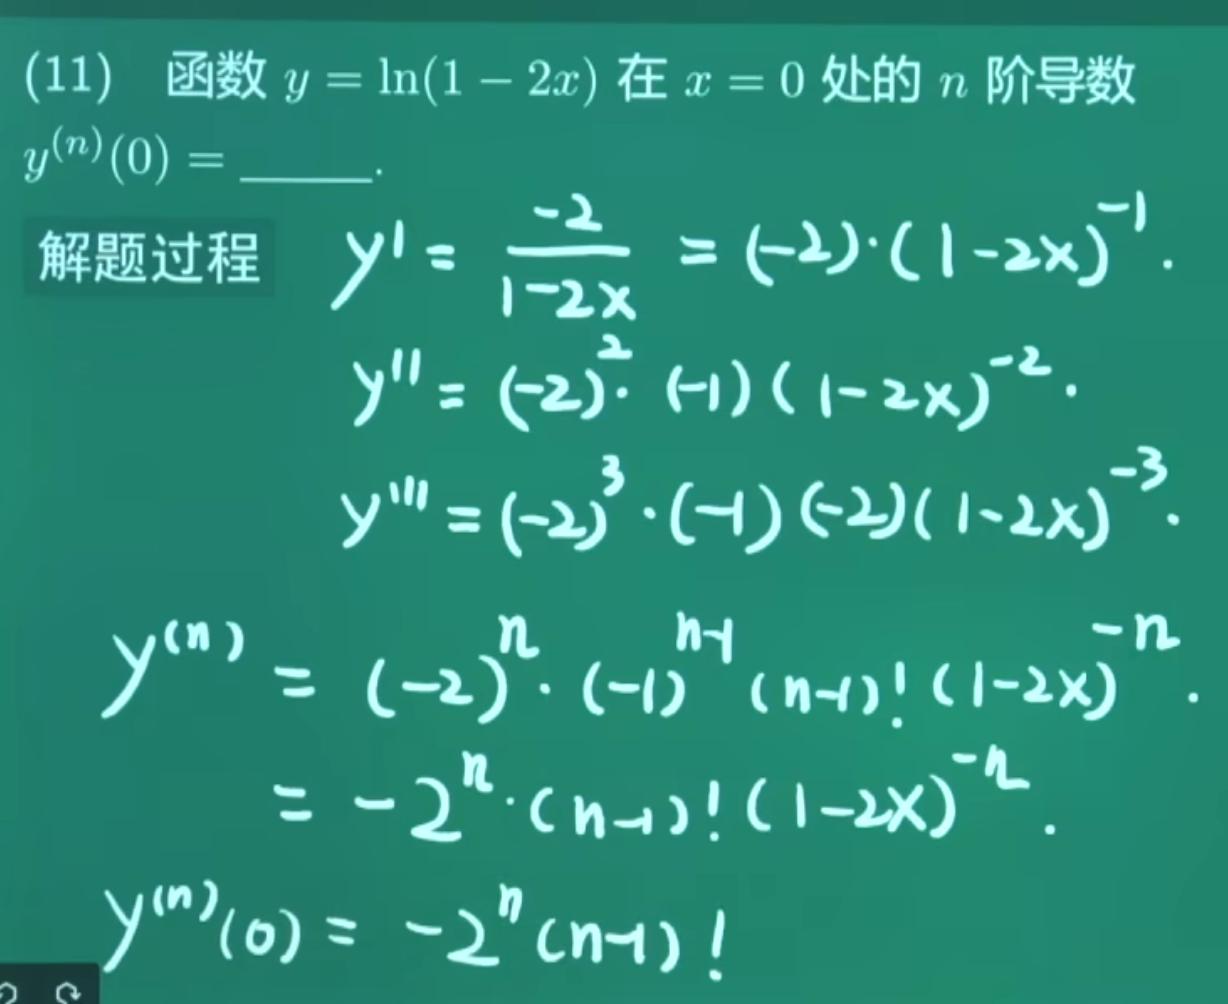 (11) 函数 y = ln(1 − 2x) 在 x = 0 处的 n 阶导数
y⁽ⁿ⁾(0) = _____.
解题过程 y' = -2/(1-2x) = (-2)·(1-2x)⁻¹.
y'' = (-2)²·(-1)(1-2x)⁻².
y''' = (-2)³·(-1)(-2)(1-2x)⁻³.
y⁽ⁿ⁾ = (-2)ⁿ·(-1)ⁿ⁻¹(n-1)!(1-2x)⁻ⁿ.
= -2ⁿ·(n-1)!(1-2x)⁻ⁿ.
y⁽ⁿ⁾(0) = -2ⁿ(n-1)!